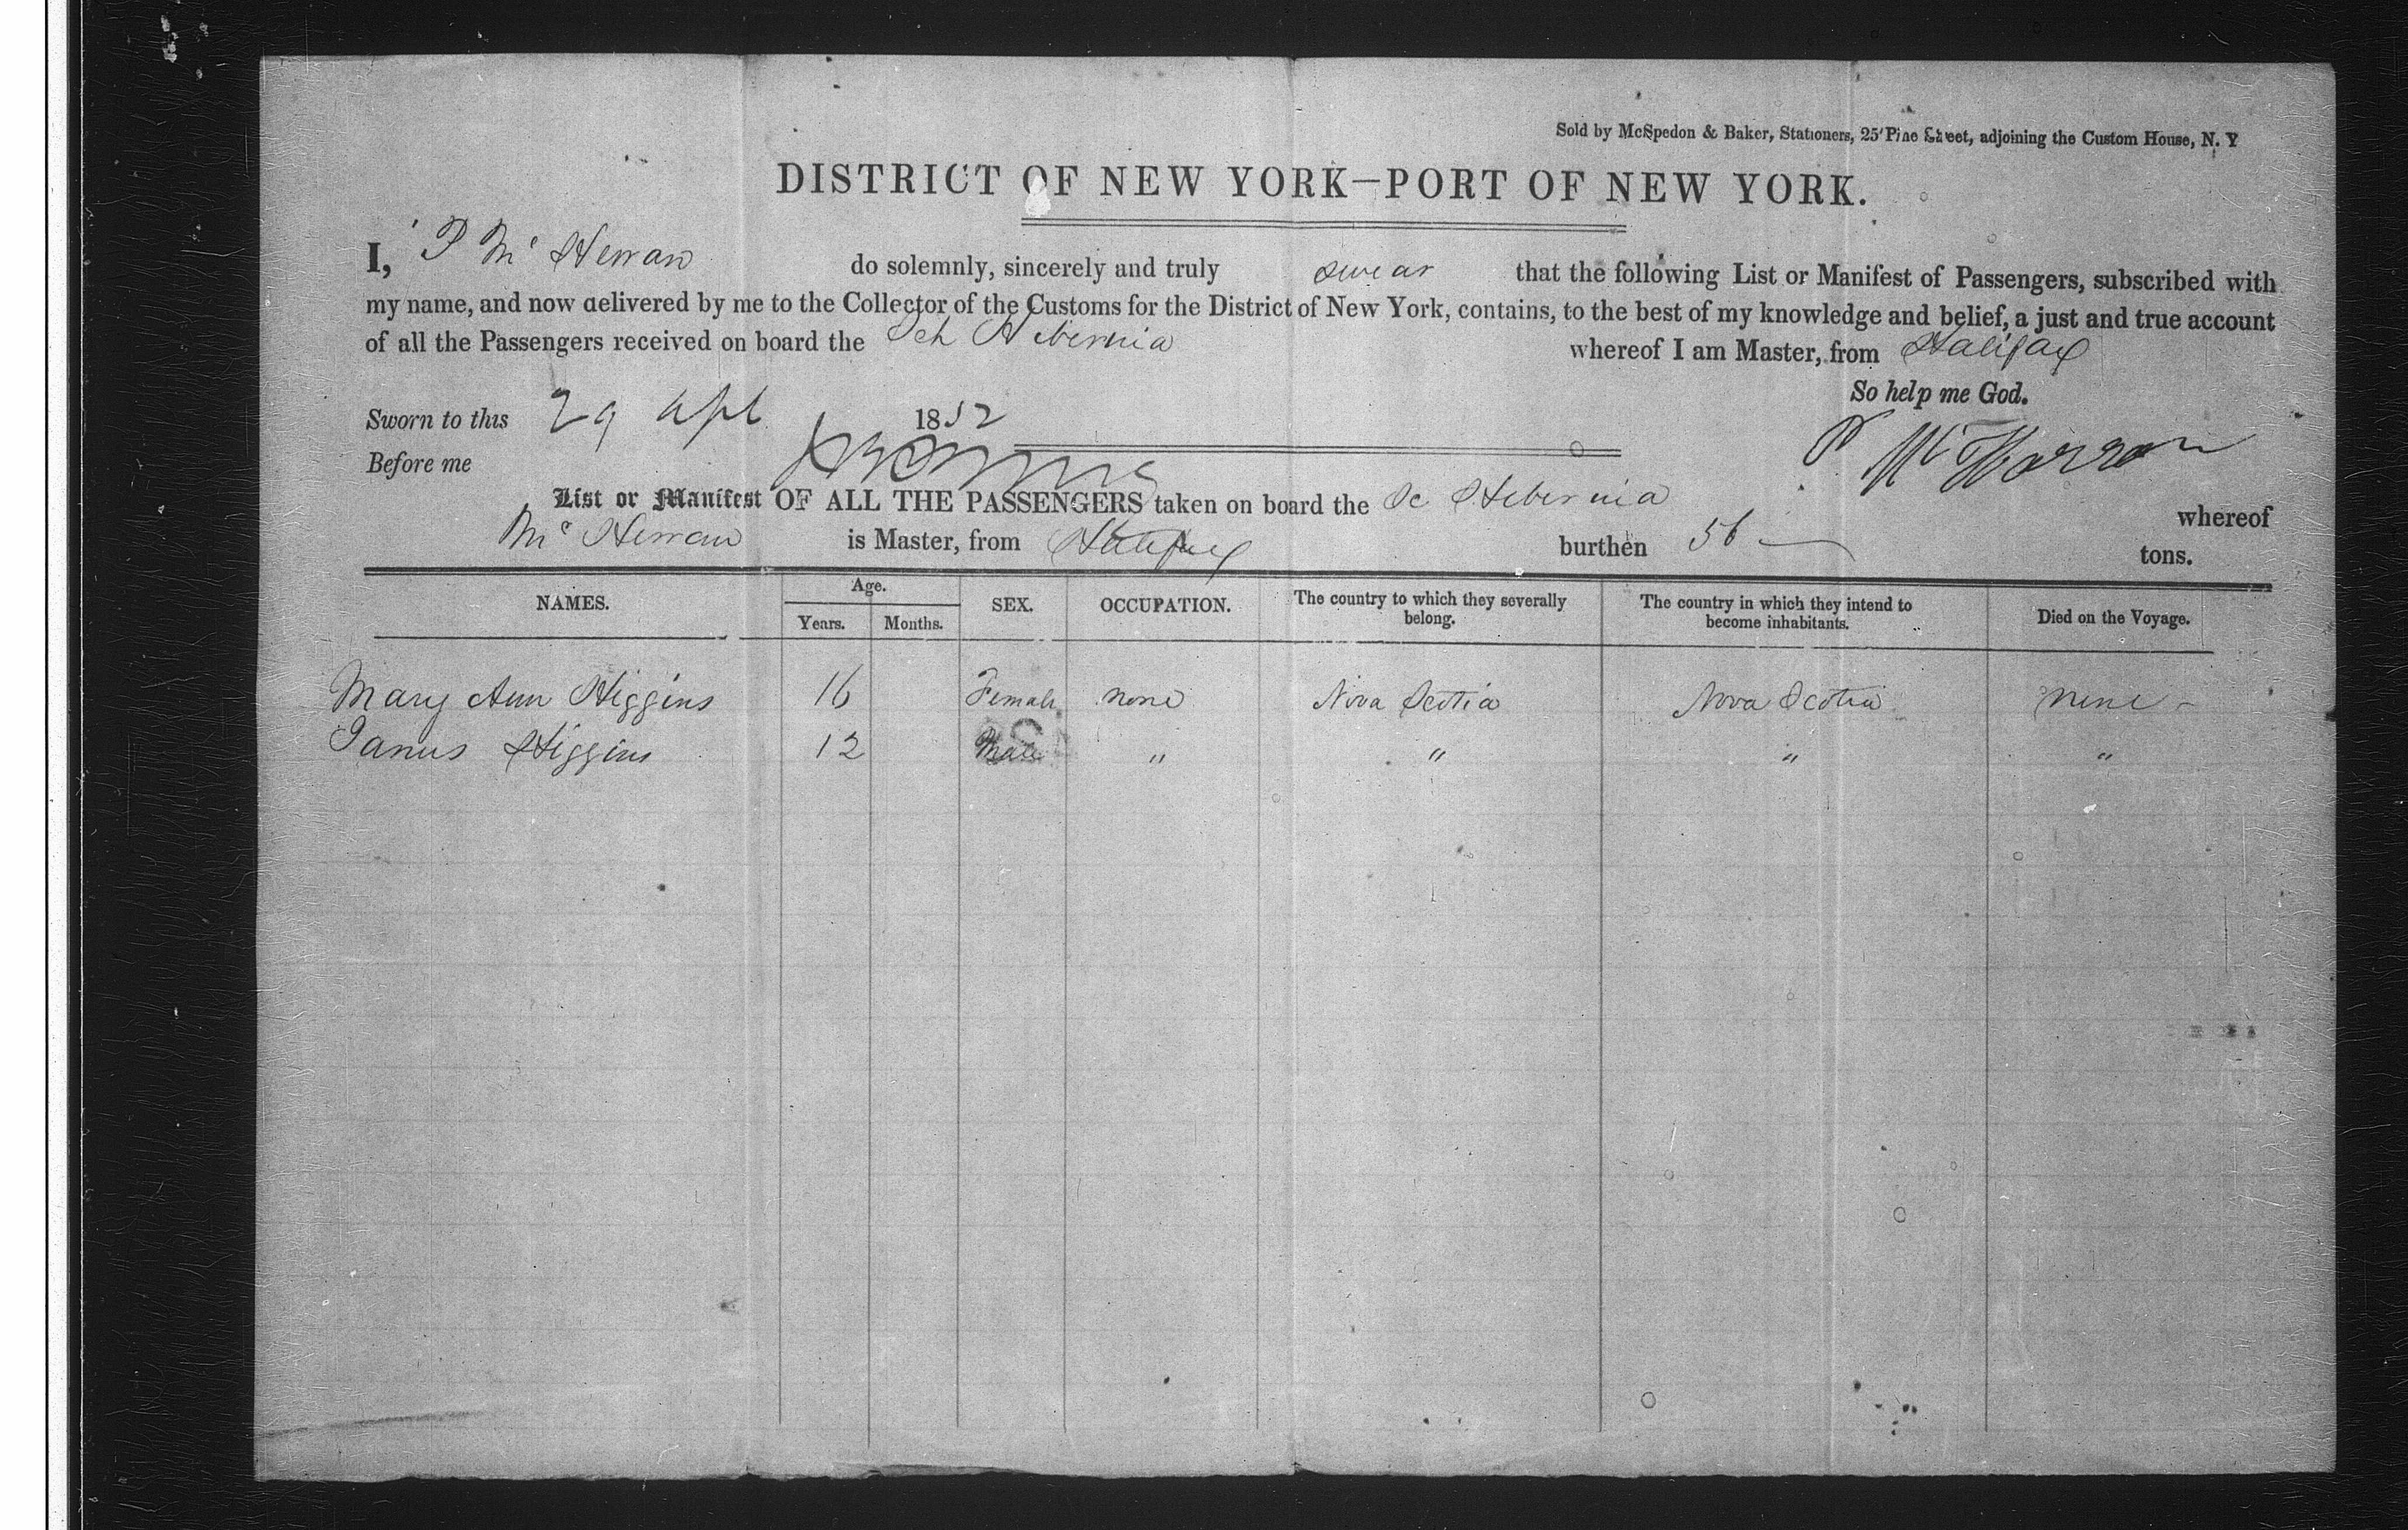 Sold by McSpedon & Baker, Stationers, 25 Pine Street, adjoining the Custom House, N. Y
DISTRICT OF NEW YORK—PORT OF NEW YORK.
I, P Mc Herran do solemnly, sincerely and truly swear that the following List or Manifest of Passengers, subscribed with
my name, and now delivered by me to the Collector of the Customs for the District of New York, contains, to the best of my knowledge and belief, a just and true account
of all the Passengers received on board the Sch Hebernia whereof I am Master, from Halifax
So help me God.
Sworn to this 29 Apl 1852
Before me
List or Manifest OF ALL THE PASSENGERS taken on board the Sc Hebernia whereof
Mc Herran is Master, from Halifax burthen 56 tons.
NAMES. Age. Years. Months. SEX. OCCUPATION. The country to which they severally belong. The country in which they intend to become inhabitants. Died on the Voyage.
Mary Ann Higgins 16 Female none Nova Scotia Nova Scotia none
James Higgins 12 Male " " " "